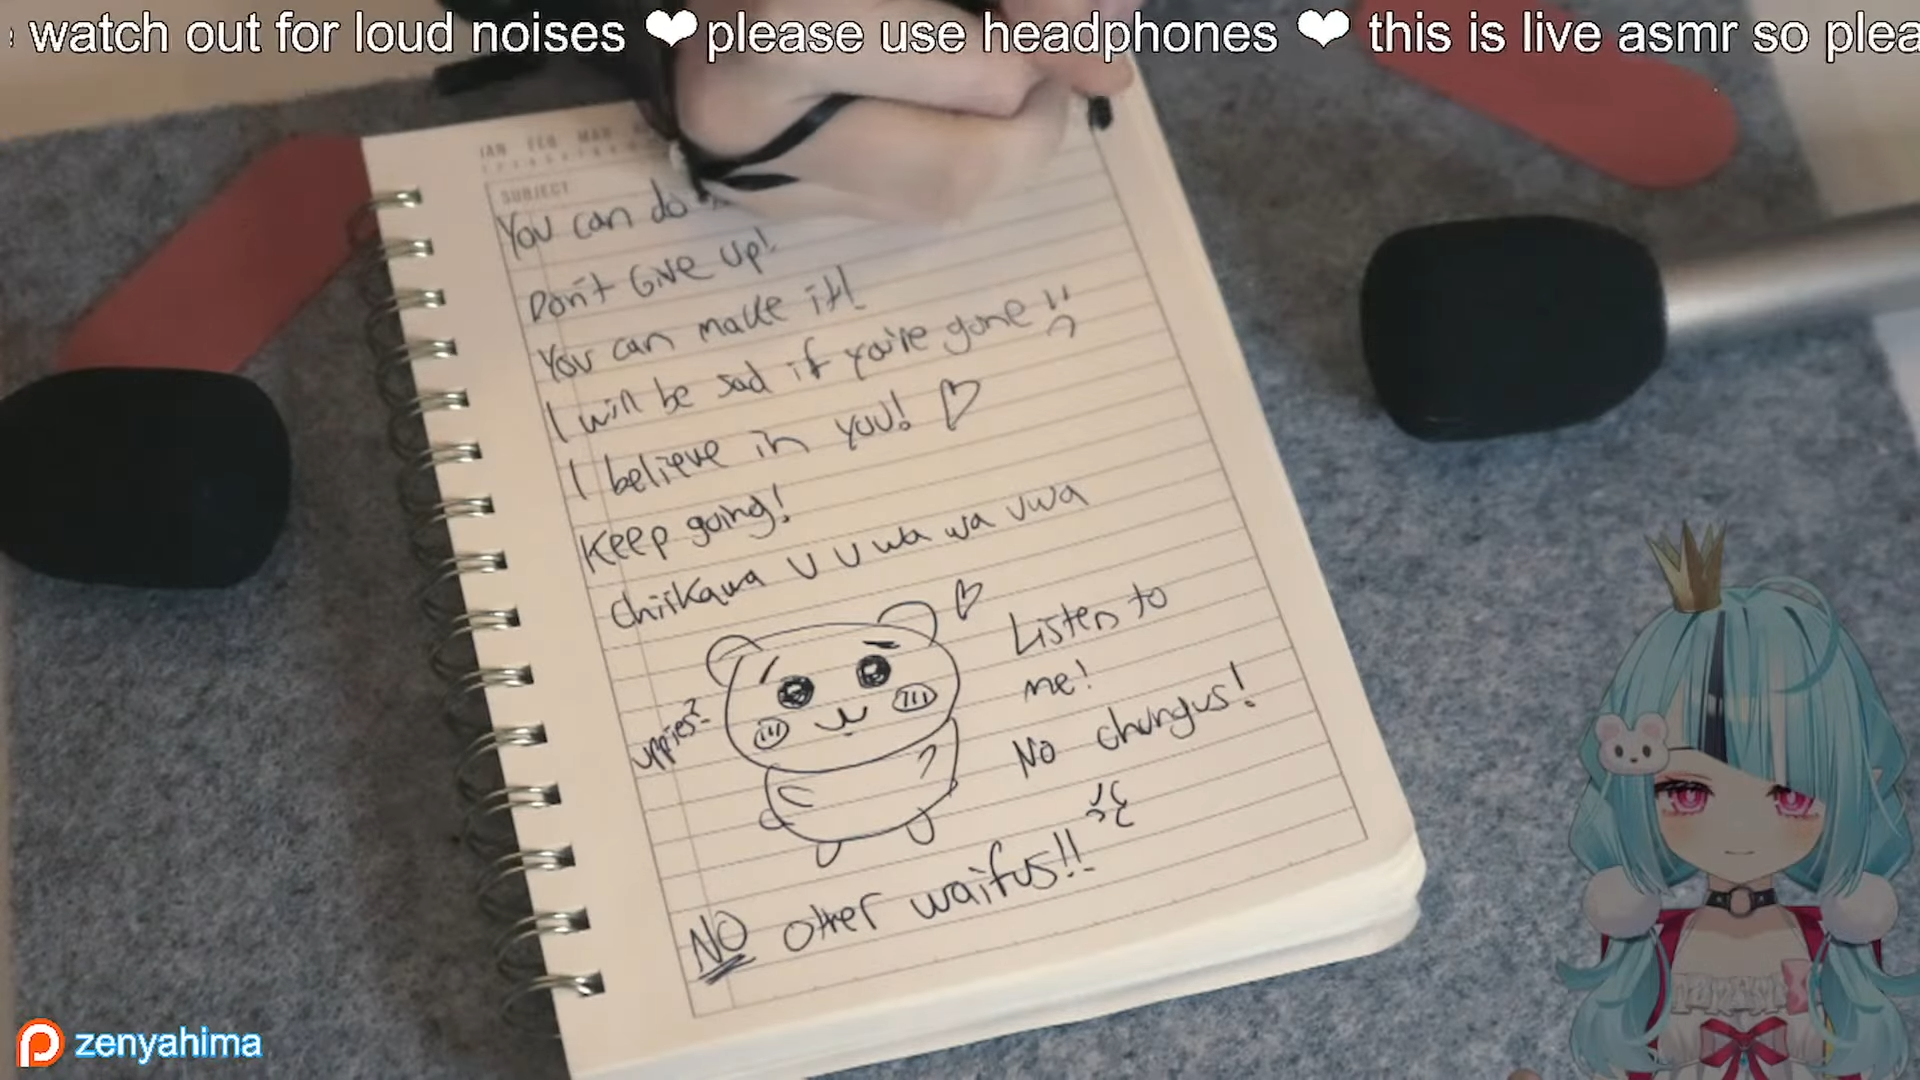 watch out for loud noises ❤ please use headphones ❤ this is live asmr so plea
JAN FEB MAR
SUBJECT
You can do
Don't Give up!
You can make it!
I will be sad if you're gone :(
I believe in you! ♡
Keep going!
Chiikawa U U wa wa uwa
♡
uppies?
Listen to
me!
No chungus!
NO other waifus!!
zenyahima